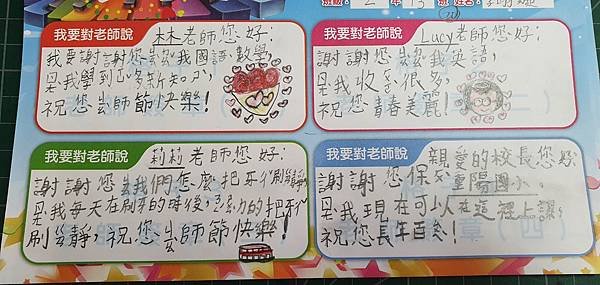 班級：2年13班 姓名：
我要對老師說
林老師您好：
我要謝謝您教我國語、數學，
我學到許多新知，
祝您教師節快樂！
我要對老師說
Lucy老師您好：
謝謝您教我英語，
我收很多，
祝您青春美麗！
我要對老師說
莉莉老師您好：
謝謝您教我們怎麼把牙
我每天在刷牙的時候，的把牙
刷，祝您教師節快樂！
我要對老師說
親愛的校長您好
謝謝您保重陽國小。
我現在可以在這裡上課，
祝您長年百 ！